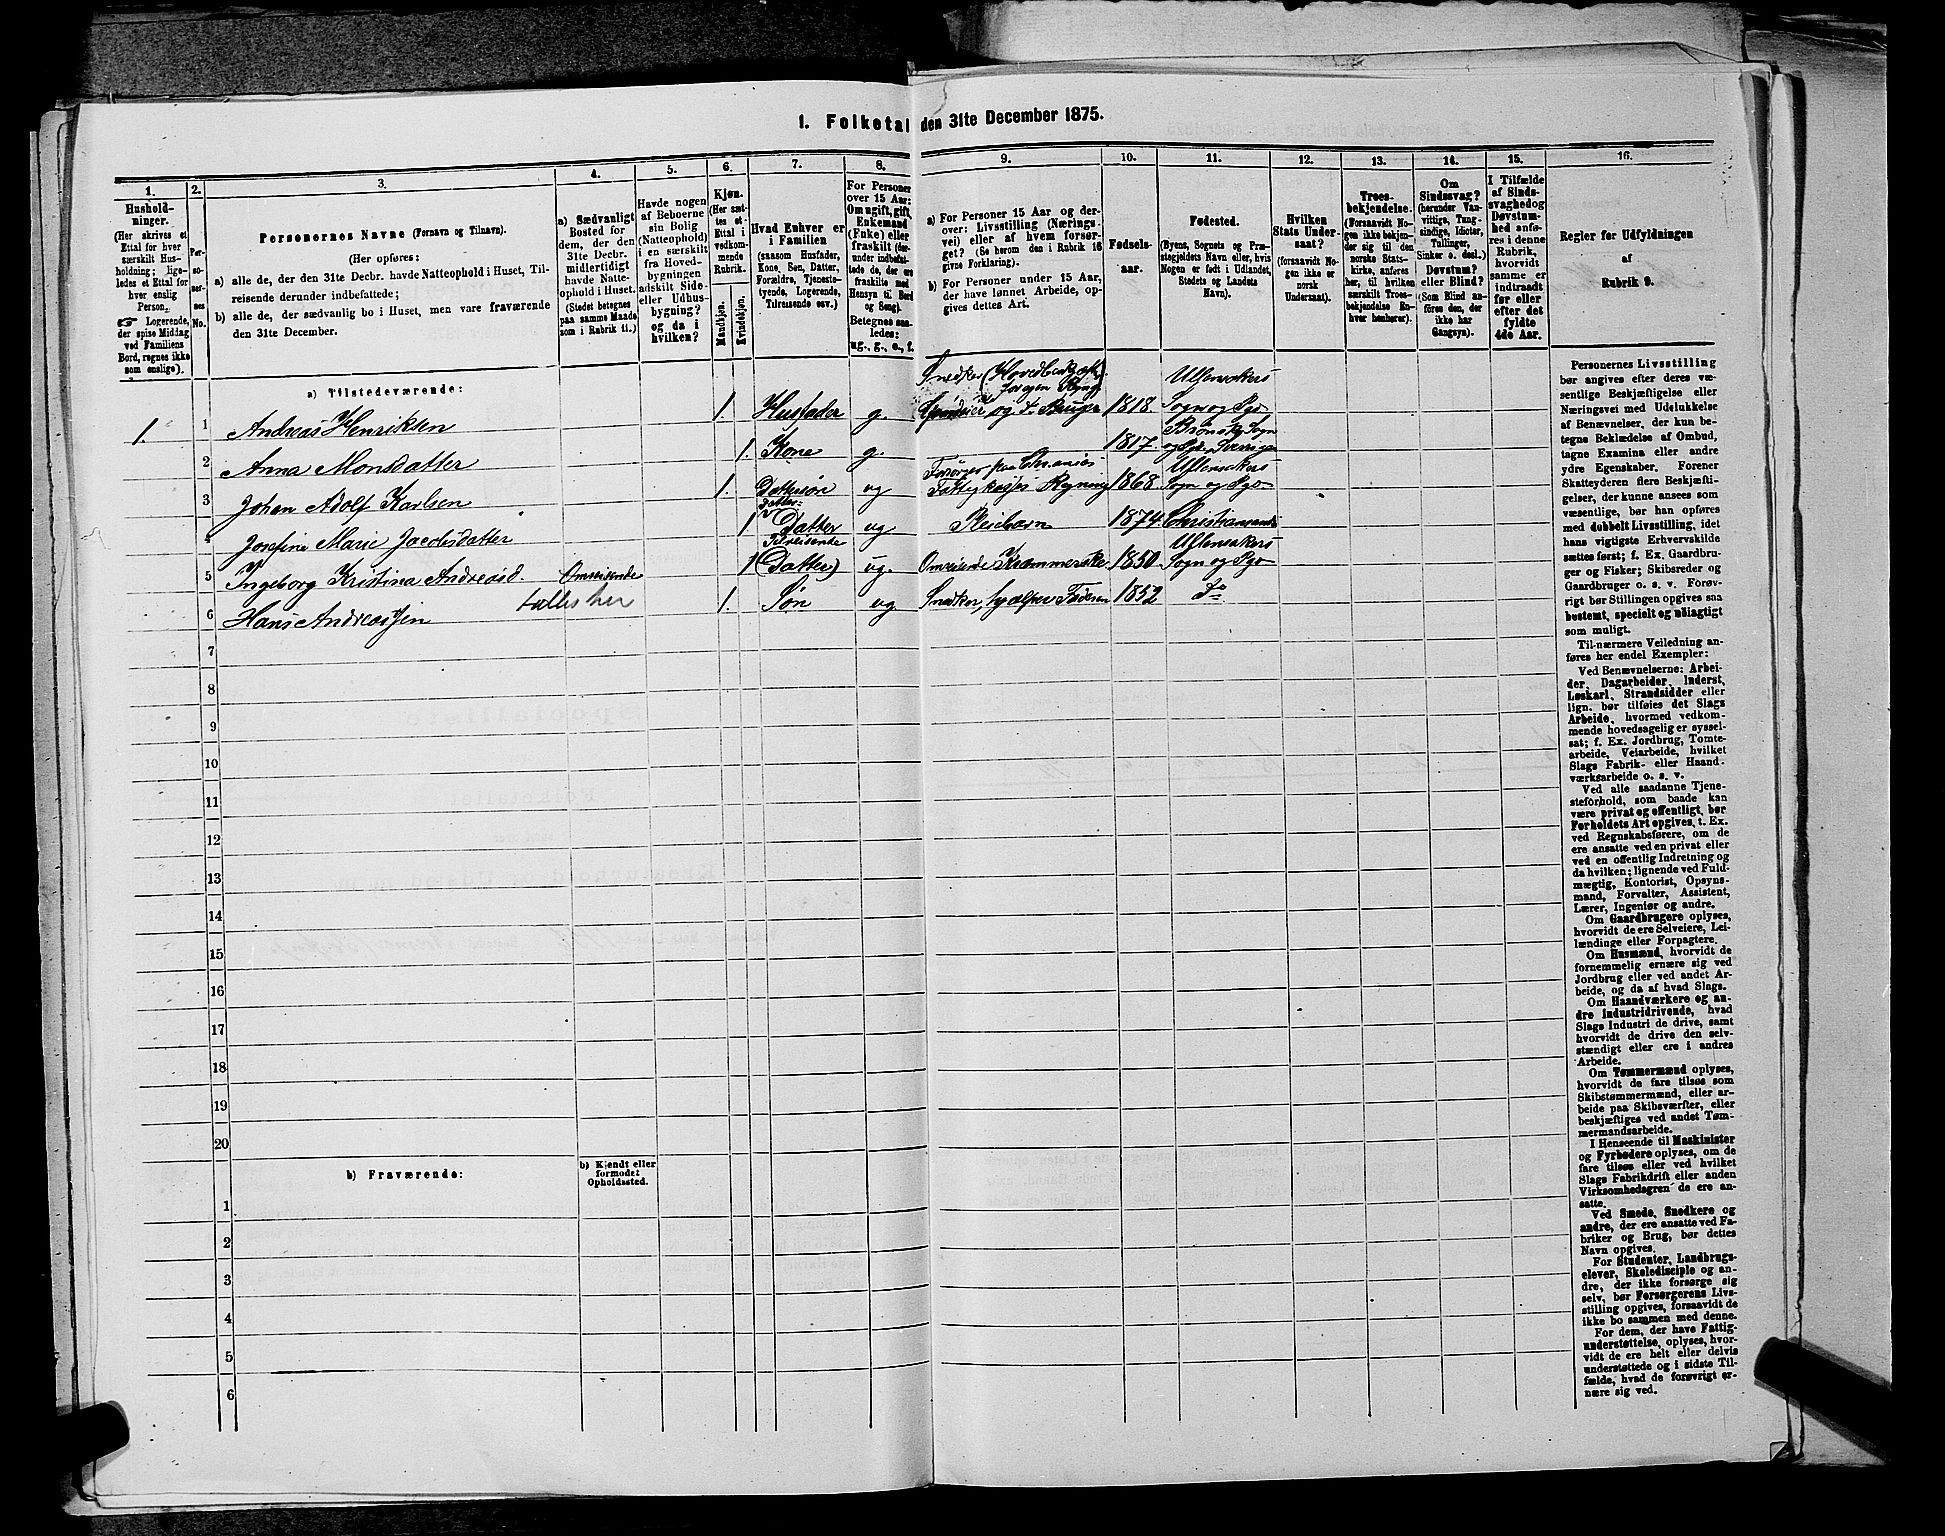 1. Folketal den 31te December 1875.
1. 2. 3. 4. 5. 6. 7. 8. 9. 10. 11. 12. 13. 14. 15. 16.
Hushold-
ninger.
(Her skrives et
Ettal for hver
særskilt Hus-
holdning; lige-
ledes et Ettal for
hver enslig
Person.)
☞ Logerende,
der spise Middag
ved Familiens
Bord, regnes ikke
som enslige).
Per-
so-
ner-
nes
No.
Personernes Navne (Fornavn og Tilnavn).
(Her opføres:
a) alle de, der den 31te Decbr. havde Natteophold i Huset, Til-
reisende derunder indbefattede;
b) alle de, der sædvanlig bo i Huset, men vare fraværende
den 31te December.
a) Sædvanligt
Bosted for
dem, der den
31te Decbr.
midlertidigt
havde Natte-
ophold i Huset.
(Stedet betegnes
paa samme Maade
som i Rubrik 11.)
Havde nogen
af Beboerne
sin Bolig
(Natteophold)
i en særskilt
fra Hoved-
bygningen
adskilt Side-
eller Udhus-
bygning?
og da i
hvilken?
Kjøn.
(Her sæt-
tes et
Ettal i
vedkom-
mende
Rubrik.
Mandkjøn.
Kvindekjøn.
Hvad Enhver er
i Familien
(saasom Husfader,
Kone, Søn, Datter,
Forældre, Tjeneste-
tyende, Logerende,
Tilreisende osv.)
For Personer
over 15 Aar:
Om ugift, gift,
Enkemand
(Enke) eller
fraskilt (der-
under indbefat-
tede de, der ere
fraskilte med
Hensyn til Bord
og Seng).
Betegnes saa-
ledes:
ug., g., e., f.
a) For Personer 15 Aar og der-
over: Livsstilling (Nærings-
vei) eller af hvem forsør-
get? (Se herom den i Rubrik 16
givne Forklaring).
b) For Personer under 15 Aar,
der have lønnet Arbeide, op-
gives dettes Art.
Fødsels-
aar.
Fødested.
(Byens, Sognets og Præ-
stegjeldets Navn eller, hvis
Nogen er født i Udlandet,
Stedets og Landets
Navn).
Hvilken
Stats Under-
saat?
(forsaavidt No-
gen ikke er
norsk
Undersaat).
Troes-
bekjendelse.
(Forsaavidt No-
gen ikke bekjen-
der sig til den
norske Stats-
kirke, anføres
her, til hvilken
særskilt Troes-
bekjendelse En-
hver henhører).
Om
Sindssvag?
(herunder Van-
vittige, Tung-
sindige, Idioter,
Tullinger,
Sinker o. desl.)
Døvstum?
eller Blind?
(Som Blind an-
føres den, der
ikke har
Gangsyn).
I Tilfælde
af Sinds-
svaghed og
Døvstum-
hed anfø-
res i denne
Rubrik,
hvorvidt
samme er
indtraadt
før eller
efter det
fyldte
4de Aar.
Regler for Udfyldningen
af
Rubrik 9.
a) Tilstedeværende:
1. 1 Andreas Henriksen 1. Husfader g. Snedker (Hovedbeskjæft. for egen Regn.) og Bruger 1818. Ullensakers Sogn og Pgd
2 Anna Monsdatter 1. Kone g. 1817.
3 Johan Adolf Karlsen 1. Dattersøn ug Forsørges paa Chranias Fattigkasses Regning 1868. Ullensakers Sogn og Pgd
4 Josefine Marie Jacobsdatter 1 Datter-Datter ug Pleiebarn 1874. Christiansand
5 Ingeborg Kristina Andreasd. Omreisende 1 Tilreisende (Datter) ug. Omreisende Kræmmerske 1850. Ullensakers Sogn og Pgd
tælles her
6 Hans Andreassen 1. Søn ug Snedker, hjælper Faderen 1852 Do
7
8
9
10
11
12
13
14
15
16
17
18
19
20
b) Fraværende:
b) Kjendt eller
formodet
Opholdssted.
1
2
3
4
5
6
Personernes Livsstilling
bør angives efter deres væ-
sentlige Beskjæftigelse eller
Næringsvei med Udelukkelse
af Benævnelser, der kun be-
tegne Beklædelse af Ombud,
tagne Examina eller andre
ydre Egenskaber. Forener
Skatteyderen flere Beskjæfti-
gelser, der kunne ansees som
væsentlige, bør han opføres
med dobbelt Livsstilling, idet
hans vigtigste Erhvervskilde
sættes først; f. Ex. Gaardbru-
ger og Fisker; Skibsreder og
Gaardbruger o. s. v. Forøv-
rigt bør Stillingen opgives saa
bestemt, specielt og nøiagtigt
som muligt.
Til nærmere Veiledning an-
føres her endel Exempler:
Ved Benævnelserne: Arbei-
der, Dagarbeider, Inderst,
Løskarl, Strandsidder eller
lign. bør tilføies det Slags
Arbeide, hvormed vedkom-
mende hovedsagelig er syssel-
sat; f. Ex. Jordbrug, Tomte-
arbeide, Veiarbeide, hvilket
Slags Fabrik- eller Haand-
værksarbeide o. s. v.
Ved alle saadanne Tjene-
steforhold, som baade kan
være privat og offentligt, bør
Forholdets Art opgives, t. Ex.
ved Regnskabsførere, om de
ere ansatte ved en privat eller
ved en offentlig Indretning og
da hvilken; lignende ved Fuld-
mægtig, Kontorist, Opsyns-
mand, Forvalter, Assistent,
Lærer, Ingeniør og andre.
Om Gaardbrugere oplyses,
hvorvidt de ere Selveiere, Lei-
lændinge eller Forpagtere.
Om Husmænd, hvorvidt de
fornemmelig ernære sig ved
Jordbrug eller ved andet Ar-
beide, og da af hvad Slags.
Om Haandværkere og an-
dre Industridrivende, hvad
Slags Industri de drive, samt
hvorvidt de drive den selv-
stændigt eller ere i andres
Arbeide.
Om Tømmermænd oplyses,
hvorvidt de fare tilsøs som
Skibstømmermænd, eller ar-
beide paa Skibsværfter, eller
beskjæftiges ved andet Tøm-
mermandsarbeide.
I Henseende til Maskinister
og Fyrbødere oplyses, om de
fare tilsøs eller ved hvilket
Slags Fabrikdrift eller anden
Virksomhedsgren de ere an-
satte.
Ved Smede, Snedkere og
andre, der ere ansatte ved Fa-
briker og Brug, bør dettes
Navn opgives.
For Studenter, Landbrugs-
elever, Skoledisciple og an-
dre, der ikke forsørge sig
selv, bør Forsørgerens Livs-
stilling opgives, forsaavidt de
ikke bo sammen med denne.
For dem, der have Fattig-
understøttelse, oplyses, hvor-
vidt de ere helt eller delvis
understøttede og i sidste Til-
fælde, hvad de forøvrigt er-
nære sig ved.